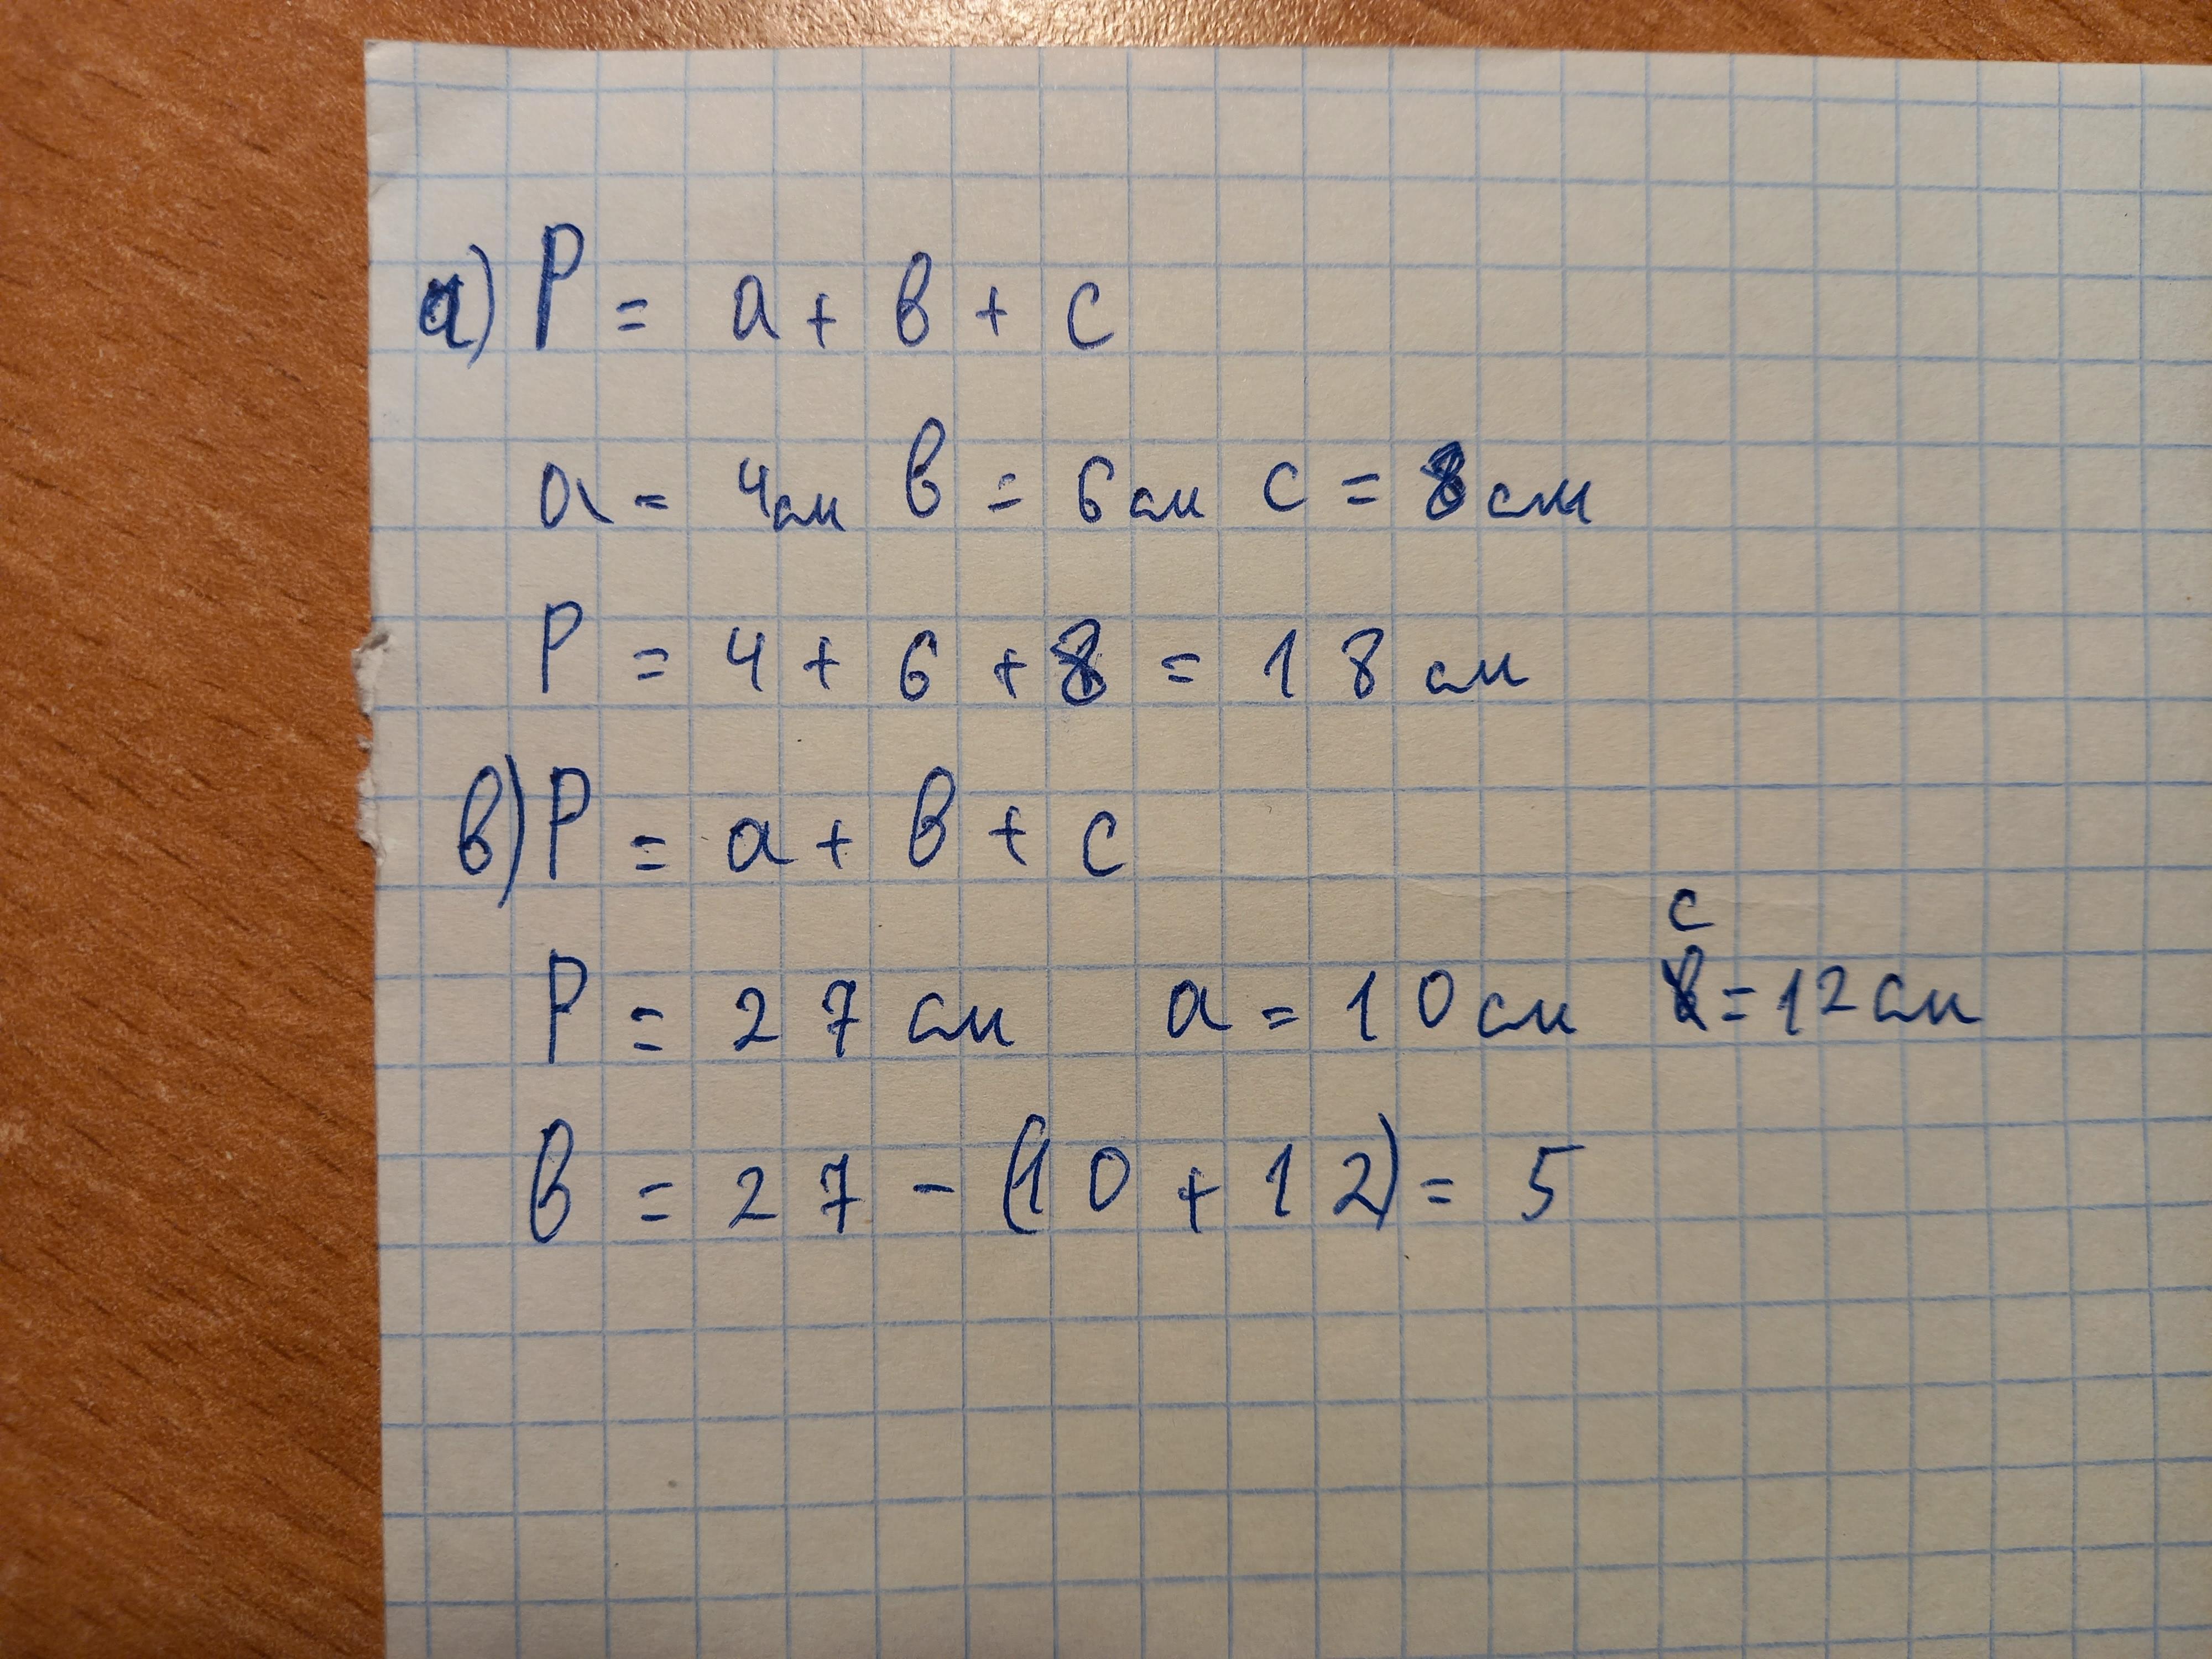 а) P = a + b + c
a = 4см b = 6см c = 8см
P = 4 + 6 + 8 = 18 см
в) P = a + b + c
c
P = 27 см a = 10см = 12см
b = 27 - (10 + 12) = 5